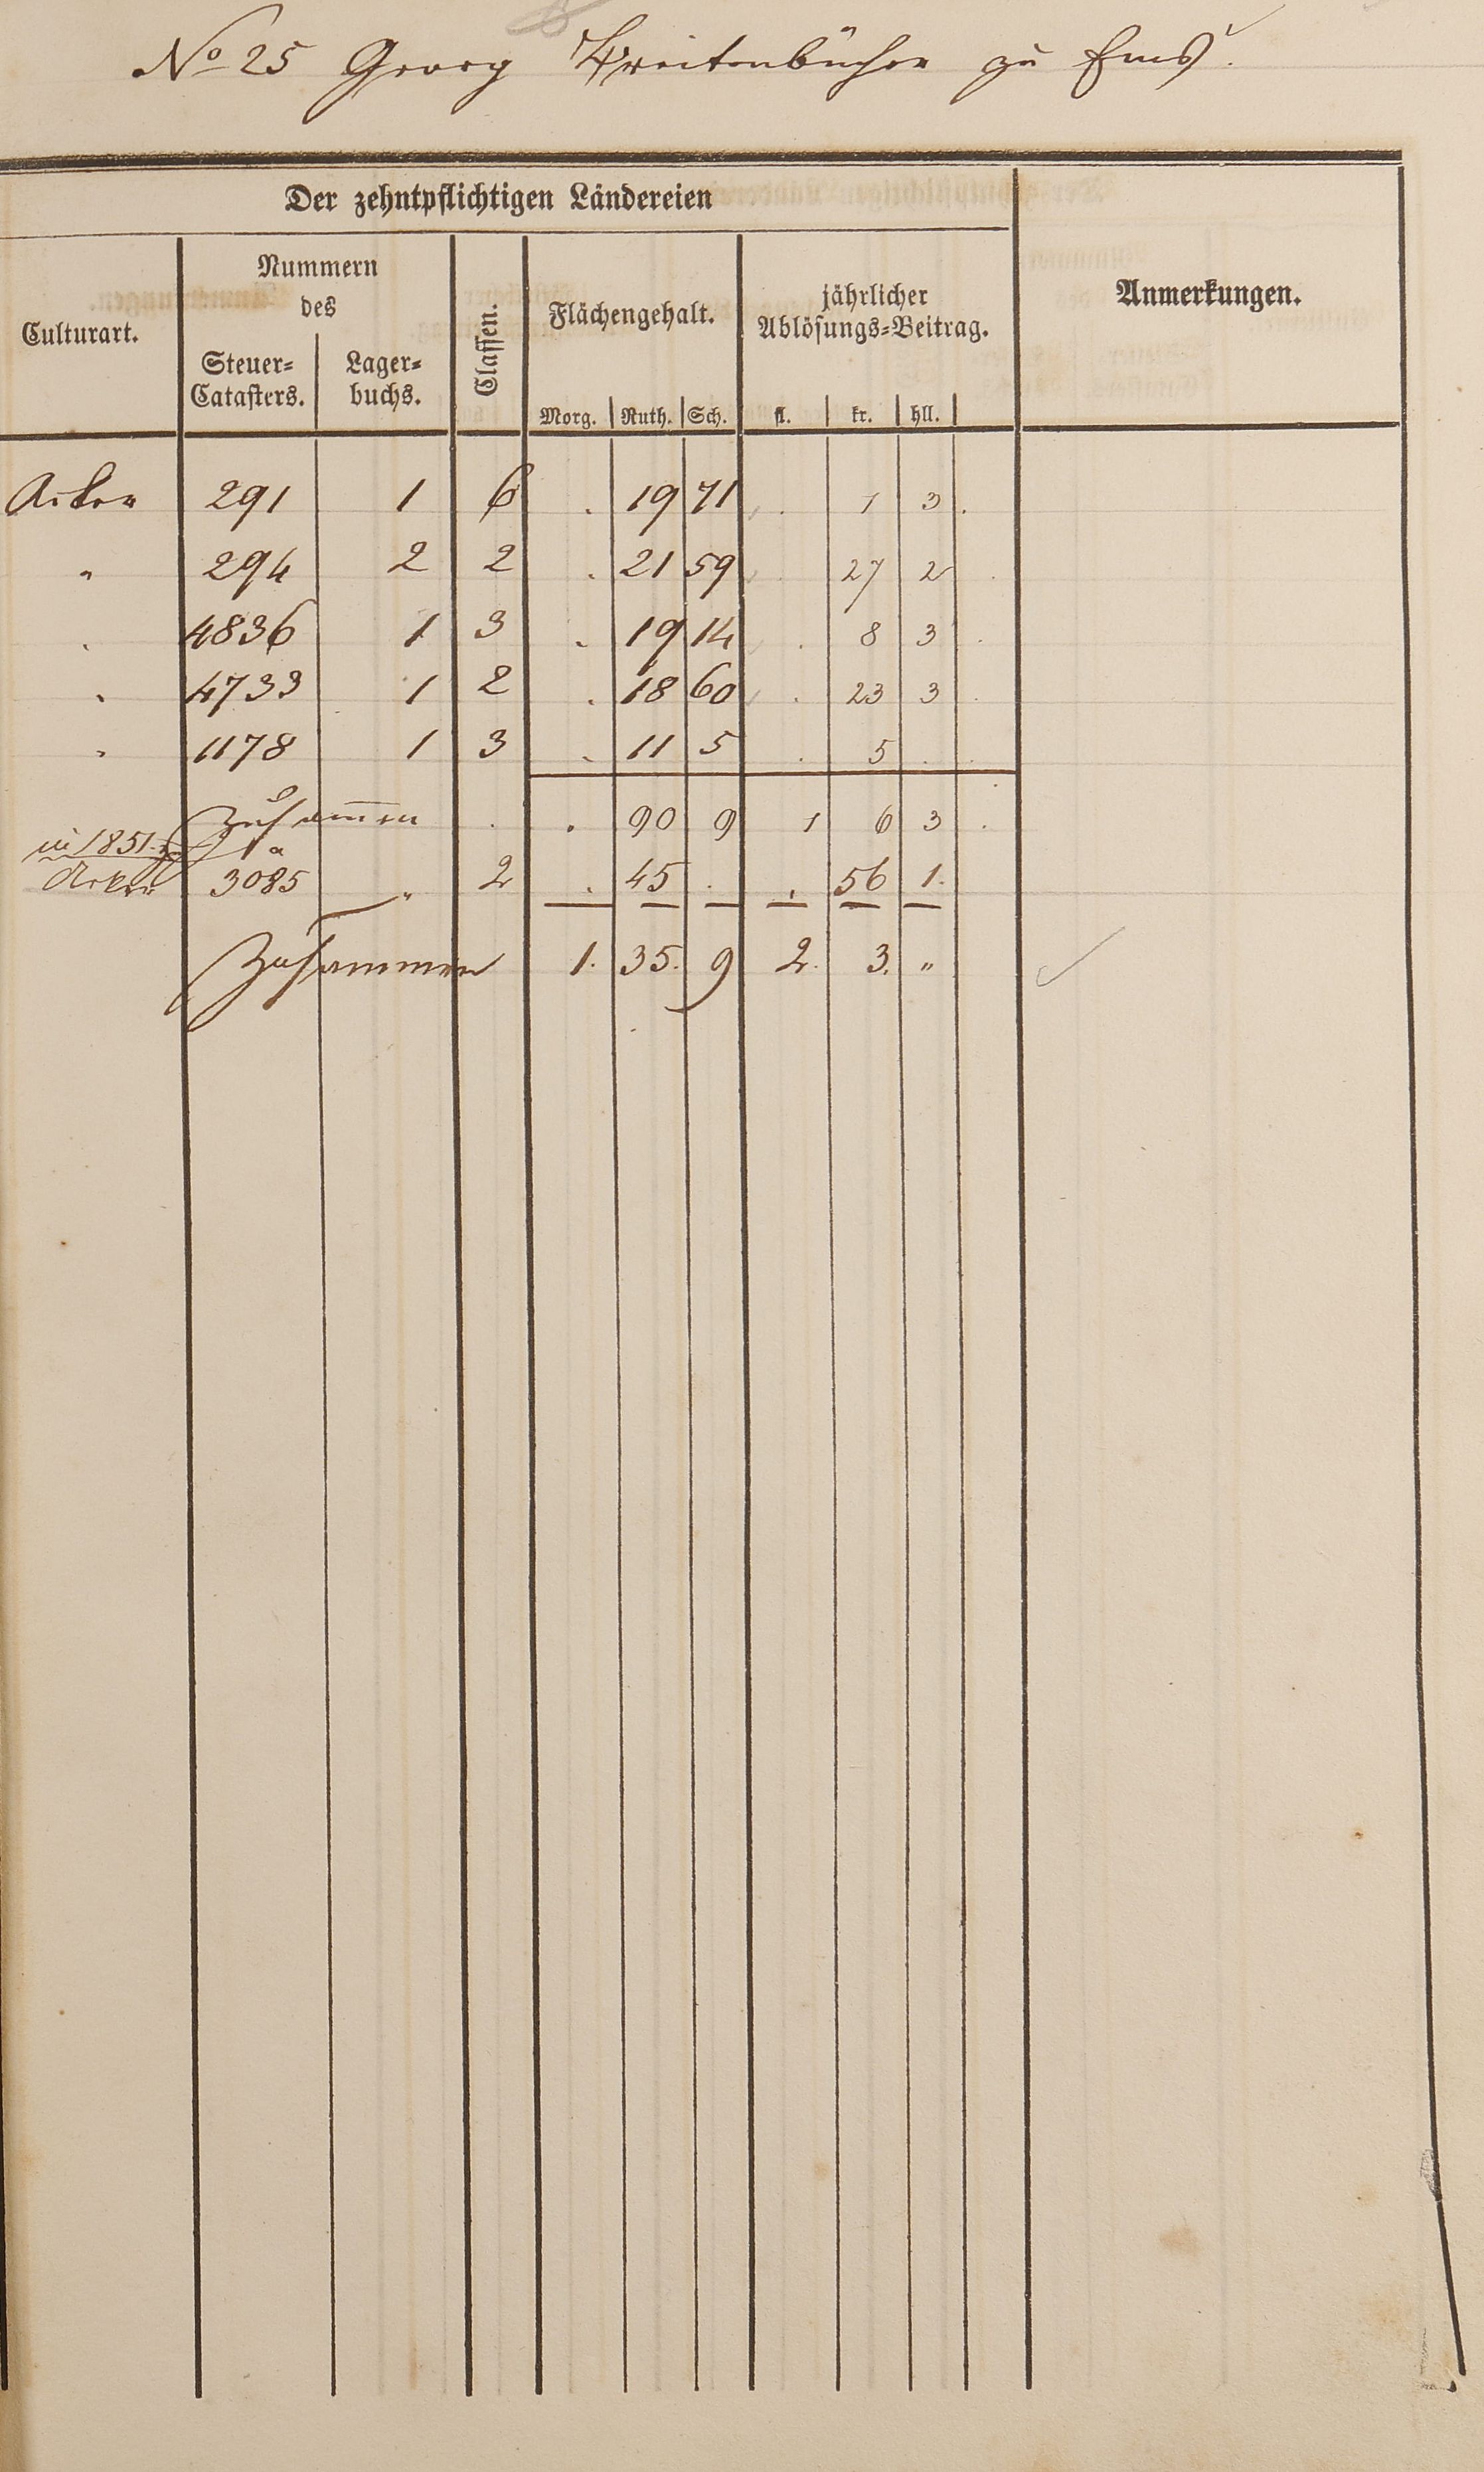 No 25 Georg Breitenbücher zu Ems.
Der zehntpflichtigen Ländereien
Culturart. Nummern des Steuer-Catasters. Lagerbuchs. Classen. Flächengehalt. Morg. Ruth. Sch. jährlicher Ablösungs-Beitrag. fl. kr. hll. Anmerkungen.
Acker 291 1 6 . 19 71 . 1 3 .
" 294 2 2 . 21 59 . 27 2 .
" 4836 1 3 . 19 14 . 8 3 .
" 4733 1 2 . 18 60 . 23 3 .
" 1178 1 3 . 11 5 . 5 . .
Zusammen . . 90 9 1 6 3 .
in 1851
Acker 3085 " 2 . 45 . . 56 1.
Zusammen 1. 35. 9 2. 3. "